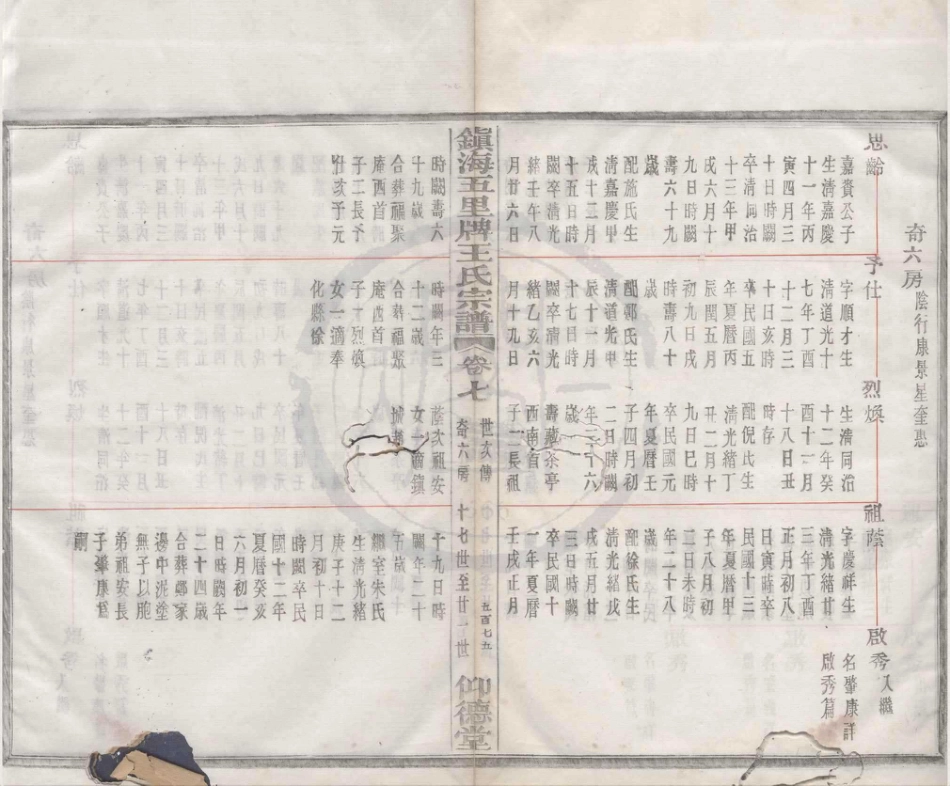 奇六房 陰行康景星奎惠
思齡
嘉貴公子
生清嘉慶
十一年丙
寅四月三
十日時闕
卒清同治
十三年甲
戌六月十
九日時闕
壽六十九
歲
配施氏生
清嘉慶甲
戌十二月
十五日時
闕卒清光
緒壬午八
月廿六日
時闕壽六
十九歲
合葬福聚
庵酉首
子二長予
仕次予元
予仕
字順才生
清道光十
七年丁酉
十二月三
十日亥時
卒民國五
年夏曆丙
辰閏五月
初九日戌
時壽八十
歲
配郭氏生
清道光甲
辰十一月
十七日時
闕卒清光
緒乙亥六
月十九日
時闕年三
十二歲
合葬福聚
庵酉首
子一烈煥
女一適奉
化縣徐
烈煥
生清同治
十二年癸
酉十一月
十八日丑
時存
配倪氏生
清光緒丁
丑二月十
九日巳時
卒民國元
年夏曆壬
子四月初
二日時闕
年三十六
歲
壽藏茶亭
西南首
子二長祖
蔭次祖安
女一適鎮
城
祖蔭
字慶祥生
清光緒廿
三年丁酉
正月初八
日寅時卒
民國十三
年夏曆甲
子八月初
二日未時
年二十八
歲
配徐氏生
清光緒戊
戌五月廿
三日時闕
卒民國十
一年夏曆
壬戌正月
十九日時
闕年二十
五歲
繼室朱氏
生清光緒
庚子十二
月初十日
時闕卒民
國十二年
夏曆癸亥
六月初一
日時闕年
二十四歲
合葬鄭家
邊中泥塗
無子以胞
弟祖安長
子肇康爲
嗣
啟秀 入繼
名肇康詳
啟秀篇
鎮海五里牌王氏宗譜 卷七 世次傳 奇六房 十七世至廿一世 五百七五 仰德堂